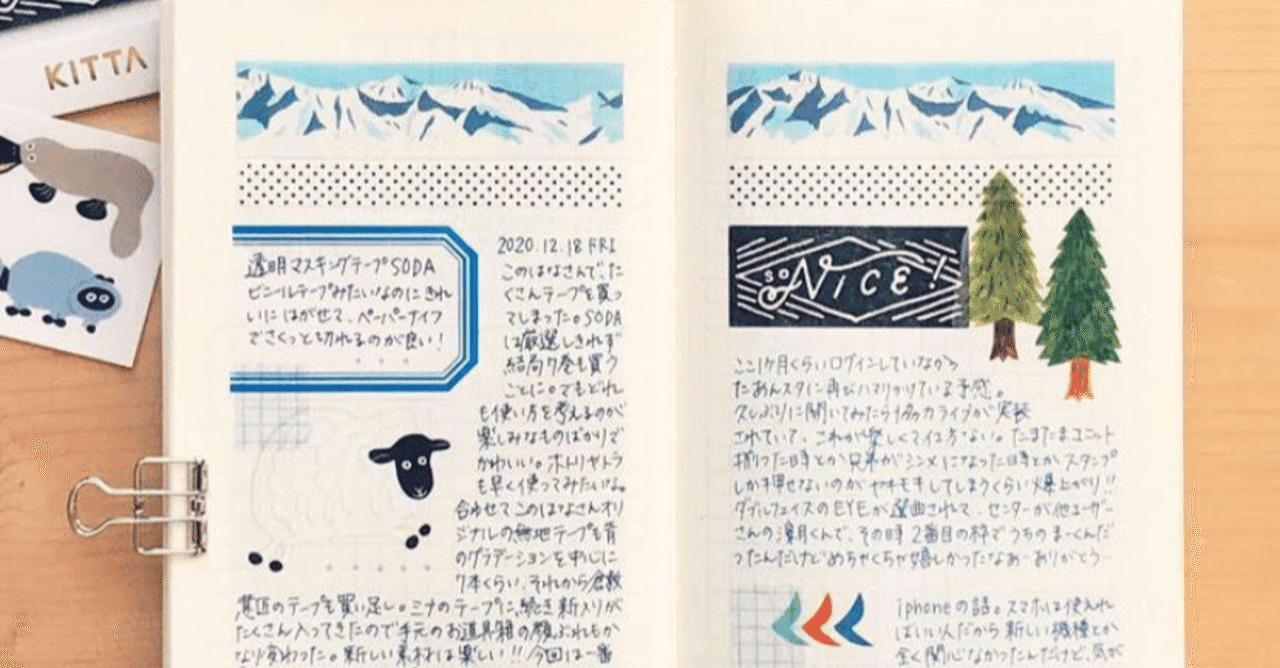 KITTA
透明マスキングテープSODA
ビニールテープみたいなのにきれ
いにはがせて、ペーパーナイフ
でさくっと切れるのが良い!
2020.12.18 FRI
このはなさんで、た
くさんテープを買っ
てしまった。SODA
は厳選しきれず
結局7巻も買う
ことに。でもどれ
も使い方を考えるのが
楽しみなものばかりで
かわいい。ホトリヤトラ
も早く使ってみたいな。
合わせてこのはなさんオリ
ジナルの無地テープも昔
のグラデーションを中心に
7本くらい、それから倉敷
意匠のテープも買い足し。ミナのテープに、続き新入りが
たくさん入ってきたので手元のお道具箱の顔ぶれもか
なり変わった。新しい素材は楽しい!!今回は一番
SO NICE!
ここ1ヶ月くらいログインしていなかっ
たあんスタに再びハマりかけている予感。
久しぶりに開いてみたら協力ライブが実装
されていて、これが楽しくて仕方ない。たまたまユニット
揃った時とか兄弟がシンメになった時とかスタンプ
しか押せないのがヤキモキしてしまうくらい爆上がり!!
ダブルフェイスのEYEが選曲されて、センターが他ユーザー
さんの澪月くんで、その時2番目の枠でうちのまーくんだ
ったんだけどめちゃくちゃ嬉しかったなあーありがとう〜
iphoneの話。スマホは使えれ
ばいい人だから新しい機種とか
全く関心なかったんだけど、気が